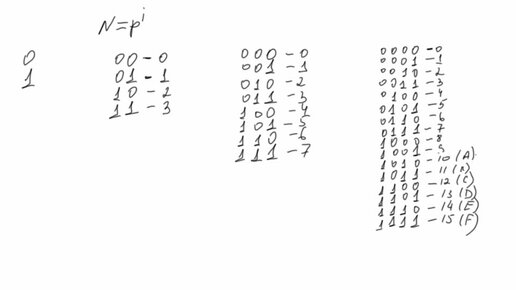 N=p^i
0
1
00-0
01-1
10-2
11-3
000-0
001-1
010-2
011-3
100-4
101-5
110-6
111-7
0000-0
0001-1
0010-2
0011-3
0100-4
0101-5
0110-6
0111-7
1000-8
1001-9
1010-10(A)
1011-11(B)
1100-12(C)
1101-13(D)
1110-14(E)
1111-15(F)